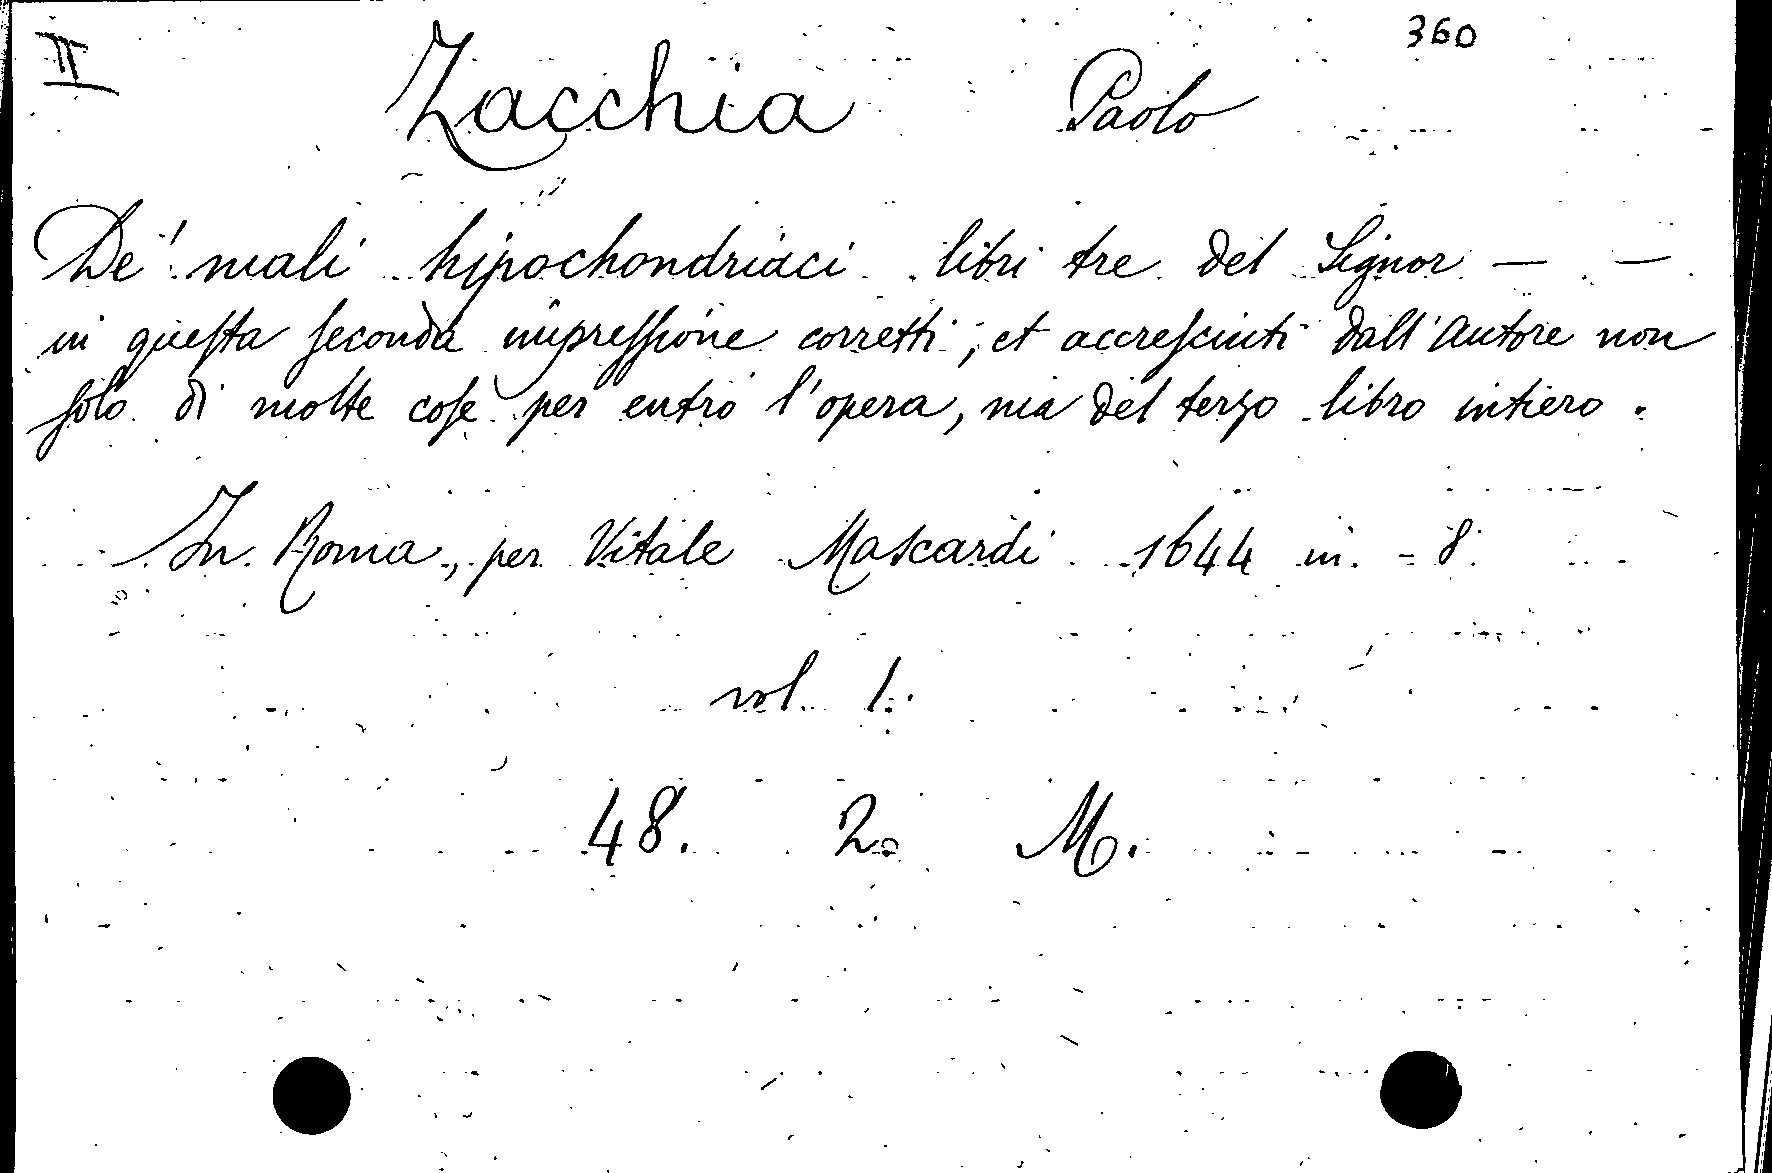 II 360
Zacchia Paolo
De' mali hipochondriaci libri tre del Signor — —
in queſta ſeconda impreſſione corretti, et accreſciuti dall'Autore non
ſolo di molte coſe per entro l'opera, ma del terzo libro intiero.
In Roma, per Vitale Mascardi 1644 in - 8
vol. 1.
48. 2. M.